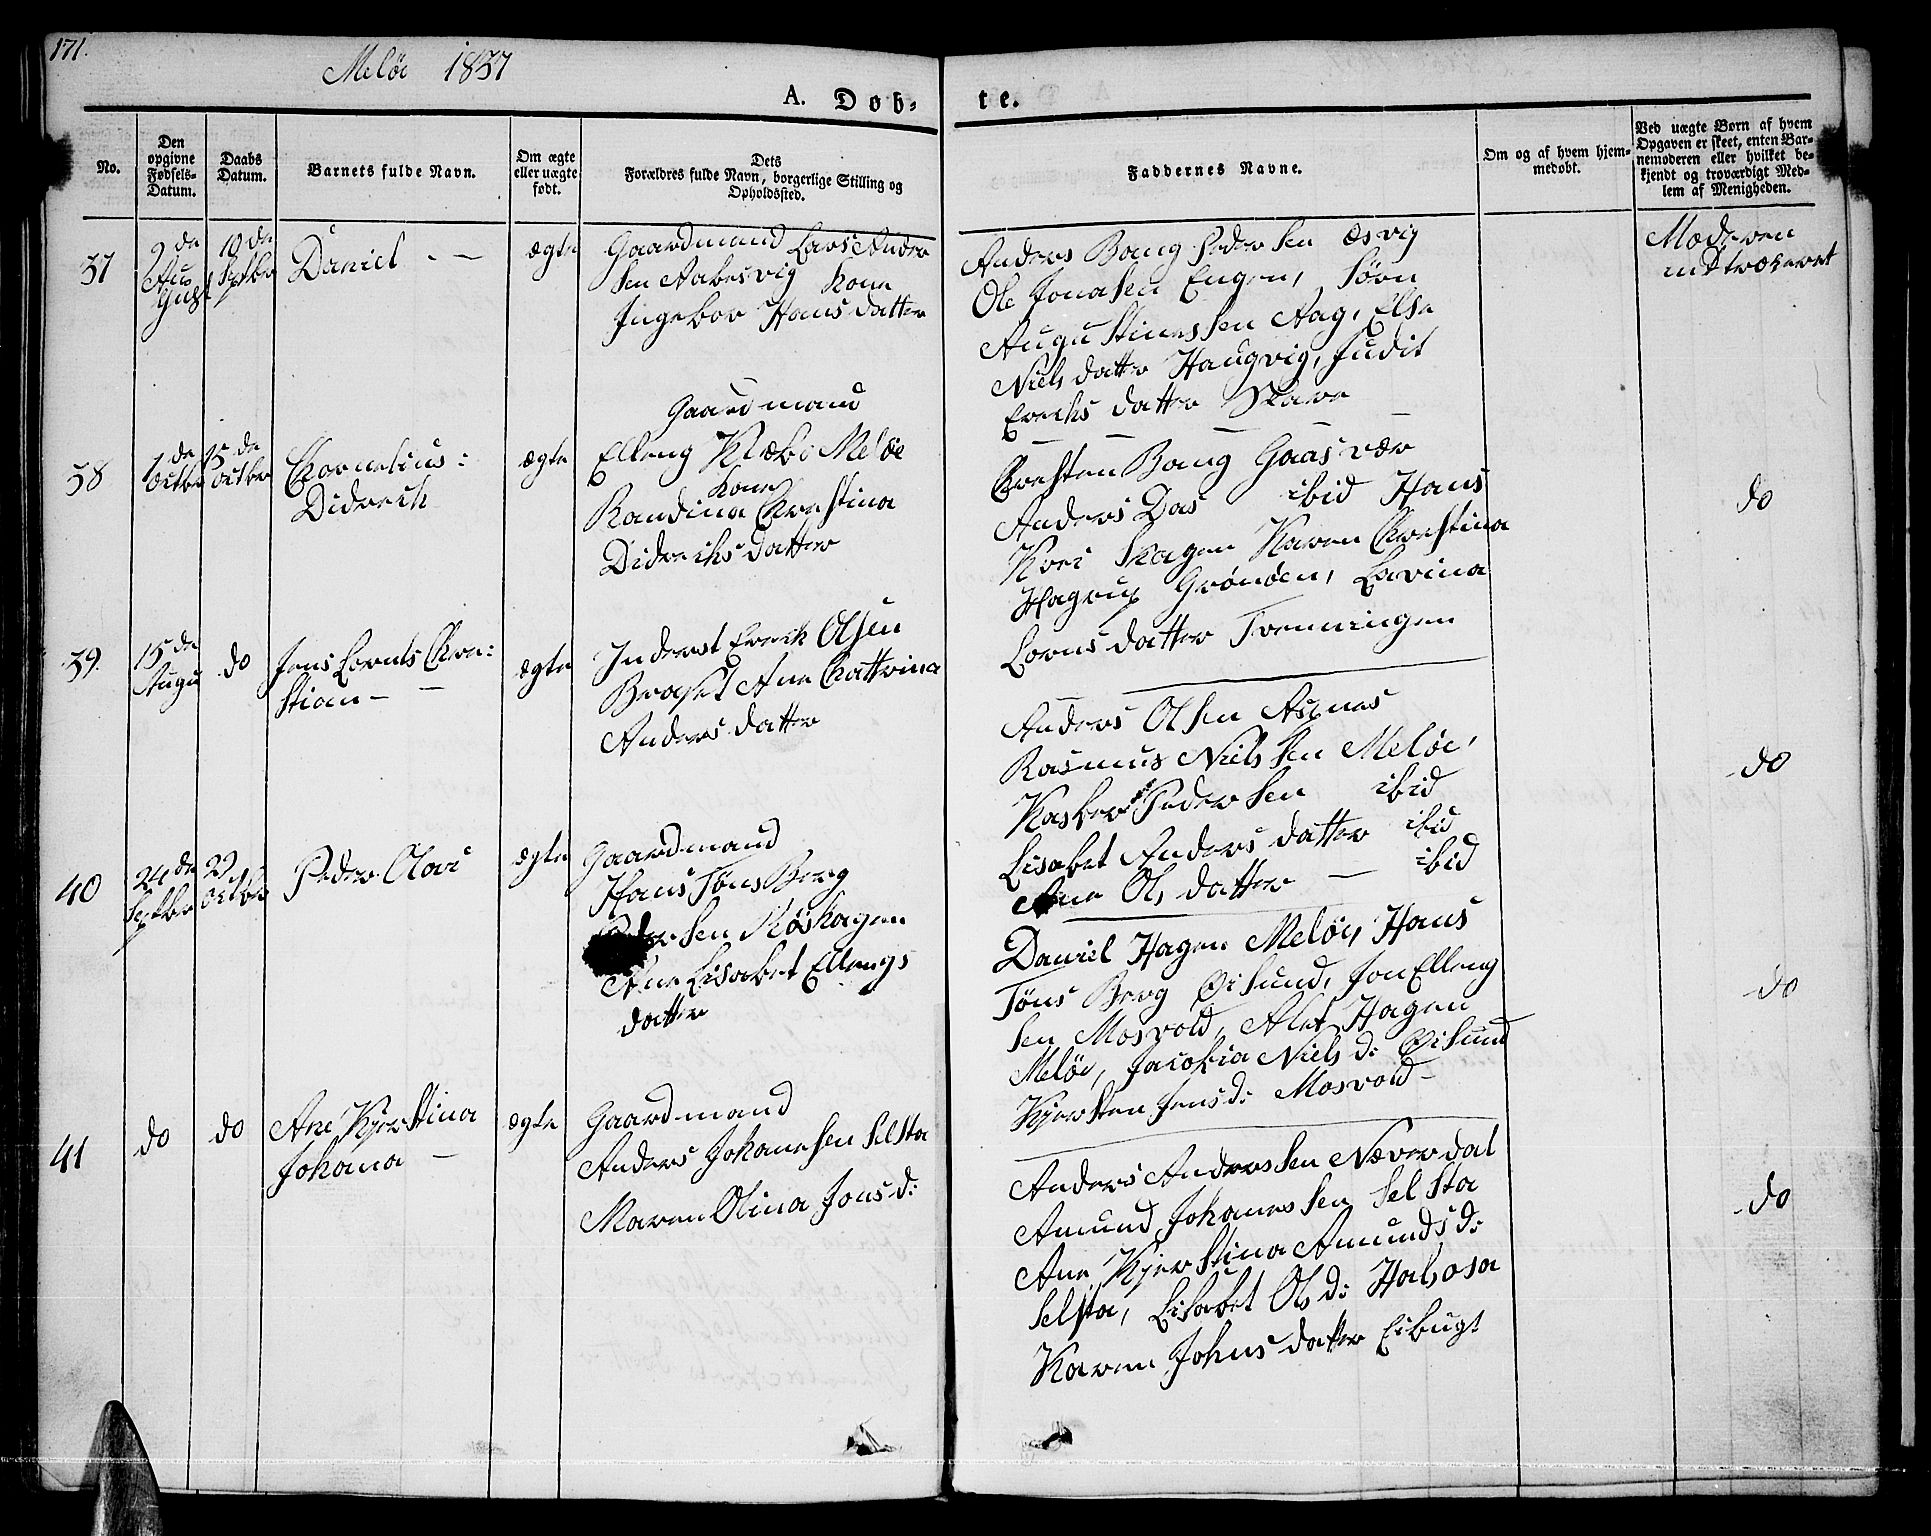 171.
Meløe 1837
A. Døb-
te.
No.
Den
opgivne
Fødsels-
Datum.
Daabs
Datum.
Barnets fulde Navn.
Om ægte
eller uægte
født.
Dets
Forældres fulde Navn, borgerlige Stilling og
Opholdssted.
Faddernes Navne.
Om og af hvem hjem-
medøbt.
Ved uægte Børn af hvem
Opgaven er skeet, enten Bar-
nemoderen eller hvilket be-
kjendt og troværdigt Med-
lem af Menigheden.
37
9 de
Au
gust
10 de
Septbr
Daniel
ægte
Gaardmand Lars Ander
sen Aabesvig Kone
Ingebor Hans datter
Anders Bang Pedersen Æsvig
Ole Jonasen Engen, Sørn
Augustinussen Aag, Else
Niels datter Haugvig, Judit
Erechs datter Skare
Moderen
indtroseret
38
1 de
Octbr
15 de
Octbr
Chornelius:
Didrech
ægte
Gaardmand
Elleng Klæbo Meløe
Kone
Randina Chrestina
Diderichs datter
Chresten Bang Gaasvær
Anders Das ibid Hans
Kvei Skagen Karen Chrestina
Hagrup Grønøen, Lavina
Lorns datter Tvenningen
do
39.
15 de
Augu
do
Jens Lornts Chre:
stian
ægte
Inderst Erech Olsen
Braset Ane Chattrina
Anders datter
Anders Olsen Aspnes
Rasmus Nielssen Meløe,
Kasber Pedersen ibid
Lisabet Anders datter ibid
Ane Ols datter ibid
do
40
24 de
Septbr
22
Octbr
Peder Olai
ægte
Gaardmand
Hans Tøns Berg
Pedersen Røshagen
Ane Lisabet Ellengs
datter
Daniel Hagen Meløe, Hans
Tøns Berg Øisund, Jon Elleng
sen Mosvold, Alet Hagen
Meløe, Jacobia Niels d: Øisund
Kjersten Jens d: Mosvold
do
41
do
do
Ane Kjerstina
Johana
ægte
Gaardmand
Anders Johanesen Selsta
Maren Olina Jons d:
Anders Anderssen Næverdal
Amund Johanessen Selsta
Ane Kjerstina Amunds d:
Selsta, Lisabet Ols d: Halsosa
Karen Johns datter Eibugt
do